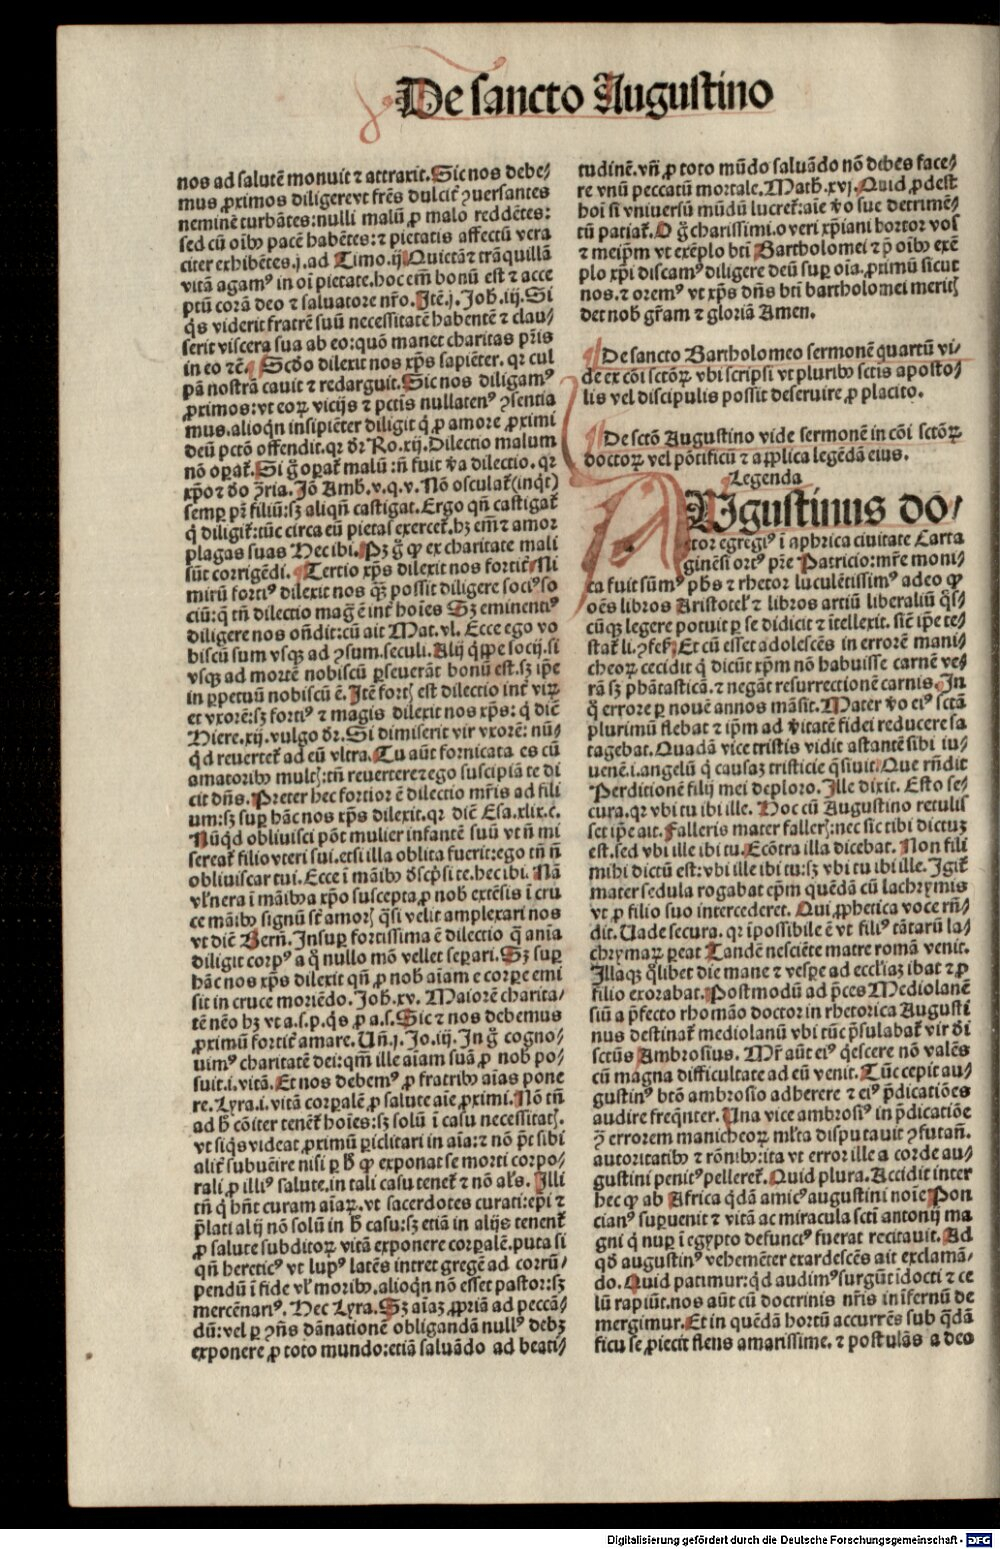 De sancto Augustino
nos ad salutē monuit ⁊ attraxit. Sic nos debe⸗
mus ꝓximos diligere vt frēs dulcit᷑ ꝯuersantes
neminē turbātes: nulli malū ꝓ malo reddētes:
sed cū oībꝫ pacē habētes: ⁊ pietatis affectū vera
citer exhibētes. j. ad Timo. ij. Quietā ⁊ trāquillā
vitā agamꝰ in oī pietate. hoc em̄ bonū est ⁊ acce
ptū corā deo ⁊ saluatore nr̄o. Itē. j. Joh. iij. Si
q̄s viderit fratrē suū necessitatē habentē ⁊ clau⸗
serit viscera sua ab eo: quō manet charitas pr̄is
in eo ⁊c̄. Scd̄o dilexit nos xp̄s sapiēter. qꝛ cul
pā nostrā cauit ⁊ redarguit. Sic nos diligamꝰ
ꝓximos: vt eoꝝ vicijs ⁊ pctīs nullatenꝰ ꝯsentia
mus. alioqn̄ insipiēter diligit q̇ ꝓ amore ꝓximi
deū pctō offendit. qꝛ dr̄ Ro. xij. Dilectio malum
nō oꝑat᷑. Si g̊ oꝑat᷑ malū: n̄ fuit v̄a dilectio. qꝛ
xp̄o ⁊ d̄o ꝯ̄ria. Jō Amb. v. q. v. Nō osculat᷑ (inq̇t)
semꝑ pr̄ filiū: sꝫ aliqn̄ castigat. Ergo qn̄ castigat᷑
q̇ diligit᷑: tūc circa eū pietas exercet᷑. hꝫ em̄ ⁊ amor
plagas suas Hec ibi. Pꝫ g̊ ꝙ ex charitate mali
sūt corrigēdi. Tertio xp̄s dilexit nos fortit᷑ Ni
mirū fortiꝰ dilexit nos q̄ꝫ possit diligere sociꝰ so
ciū: q̇ tn̄ dilectio mag̊ ē int᷑ hoīes Sꝫ eminentiꝰ
diligere nos on̄dit: cū ait Mat. vl. Ecce ego vo
biscū sum vsqꝫ ad ꝯsum. seculi. Alij q̇ꝑpe socij. si
vsqꝫ ad mortē nobiscū ꝑseuerāt bonū est. sꝫ ip̄e
in ꝑpetuū nobiscū ē. Itē fortꝭ est dilectio int᷑ viꝝ
et vxorē: sꝫ fortiꝰ ⁊ magis dilexit nos xp̄s: q̇ diē
Hiere. xij. vulgo dr̄. Si dimiserit vir vxorē: nū⸗
q̇d reuertet᷑ ad eū vltra. Tu aūt fornicata es cū
amatoribꝫ multꝭ: tn̄ reuertere ⁊ ego suscipiā te di
cit dn̄s. Preter hec fortior ē dilectio mr̄is ad fili
um: sꝫ suꝑ hāc nos xp̄s dilexit. qꝛ diē Esa. xlix. c.
Nūq̇d obliuisci pōt mulier infantē suū vt n̄ mi
sereat᷑ filio vteri sui. etsi illa oblita fuerit: ego tn̄ n̄
obliuiscar tui. Ecce ī manibꝫ dsc̄psi te. hec ibi. Nā
vl̄nera ī māibꝫ a xp̄o suscepta ꝓ nob̄ extēsis ī cru
ce māibꝫ signū st̄ amorꝭ q̇si velit amplexari nos
vt diē Bern̄. Insuꝑ fortissima ē dilectio q̄ aīa
diligit corpꝰ a q̊ nullo mō vellet seꝑari. Sꝫ suꝑ
hāc nos xp̄s dilexit qn̄ ꝓ nob̄ aīam e corꝑe emi
sit in cruce moriēdo. Joh. xv. Maiorē charita⸗
tē nēo hꝫ vt a. s. p. q̇s ꝓ a. s. Sic ⁊ nos debemus
ꝓximū fortit᷑ amare. Un̄. j. Jo. iij. In g̊ cogno⸗
uimꝰ charitatē dei: qm̄ ille aīam suā ꝓ nob̄ po⸗
suit. i. vitā. Et nos debemꝰ ꝓ fratribꝫ aīas pone
re. Lyra. i. vitā corꝑalē ꝓ salute aīe ꝓximi. Nō tn̄
ad h̄ cōiter tenet᷑ hoīes: sꝫ solū ī casu necessitatꝭ.
vt siq̇s videat ꝓximū ꝑiclitari in aīa: ⁊ nō p̄t sibi
alit᷑ subuēire nisi ꝑ h̄ ꝙ exponat se morti corpo⸗
rali ꝓ illiꝰ salute. in tali casu tenet᷑ ⁊ nō al̄s. Illi
tn̄ q̇ hn̄t curam aīaꝝ. vt sacerdotes curati: ep̄i ⁊
p̄lati alij nō solū in h̄ casu: sꝫ etiā in alijs tenent᷑
ꝓ salute subditoꝝ vitā exponere corꝑalē. puta si
qn̄ hereticꝰ vt lupꝰ latēs intret gregē ad corrū⸗
pendū ī fide vl̄ moribꝫ. alioqn̄ nō esset pastor: sꝫ
mercēnariꝰ. Hec Lyra. Sꝫ aīaꝫ ꝓpriā ad peccā⸗
dū: vel ꝑ ꝯn̄s dānationē obligandā nullꝰ debꝫ
exponere ꝓ toto mundo: etiā saluādo ad beati⸗
tudinē. vn̄ ꝓ toto mūdo saluādo nō debes face⸗
re vnū peccatū mortale. Math. xvj. Quid ꝓdest
hoī si vniuersū mūdū lucret᷑: aīe v̄o sue detrimē⸗
tū patiat᷑. O g̊ charissimi. o veri xp̄iani hortor vos
⁊ meip̄m vt exēplo bt̄i Bartholomei ⁊ p̄ oībꝫ exē
plo xp̄i discamꝰ diligere deū suꝑ oīa. ꝓximū sicut
nos. ⁊ oremꝰ vt xp̄s dn̄s bt̄i bartholomei meritꝭ
det nob̄ gr̄am ⁊ gloriā Amen.
De sancto Bartholomeo sermonē quartū vi⸗
de ex cōi sctōꝝ vbi scripsi vt pluribꝫ sctīs aposto⸗
lis vel discipulis possit deseruire ꝓ placito.
De sctō Augustino vide sermonē in cōi sctōꝝ
doctoꝝ vel pōtificū ⁊ applica legēdā eius.
Legenda
AUgustinus do⸗
ctor egregiꝰ ī aphrica ciuitate Carta
ginēsi ortꝰ pr̄e Patricio: mr̄e moni⸗
ca fuit sūmꝰ ph̄s ⁊ rhetor luculētissimꝰ adeo ꝙ
oēs libros Aristotel᷑ ⁊ libros artiū liberaliū q̄s⸗
cūqꝫ legere potuit ꝑ se didicit ⁊ ītellexit. siē ip̄e te⸗
stat᷑ li. ꝯfes. Et cū esset adolescēs in errorē mani⸗
cheoꝝ cecidit q̇ dicūt xp̄m nō habuisse carnē ve⸗
rā sꝫ phātasticā. ⁊ negāt resurrectionē carnis. In
q̊ errore ꝑ nouē annos māsit. Mater v̄o eiꝰ sctā
plurimū flebat ⁊ ip̄m ad v̄itatē fidei reducere sa
tagebat. Quadā vice tristis vidit astantē sibi iu⸗
uenē. i. angelū q̇ causaꝫ tristicie q̄siuit. Que rn̄dit
Perditionē filij mei deploro. Ille dixit. Esto se⸗
cura. qꝛ vbi tu ibi ille. Hoc cū Augustino retulis
set ip̄e ait. Falleris mater fallerꝭ: nec sic tibi dictuꝫ
est. sed vbi ille ibi tu. Ecōtra illa dicebat. Non fili
mihi dictū est: vbi ille ibi tu: sꝫ vbi tu ibi ille. Igit᷑
mater sedula rogabat ep̄m quēdā cū lachrymis
vt ꝓ filio suo intercederet. Qui ꝓphetica voce rn̄⸗
dit. Uade secura. qꝛ īpossibile ē vt filiꝰ tātarū la⸗
chrymaꝝ ꝑeat Tandē nesciēte matre romā venit.
Illaqꝫ q̄libet die mane ⁊ vesꝑe ad eccl̄iaꝫ ibat ⁊ ꝓ
filio exorabat. Postmodū ad p̄ces Mediolanē
siū a p̄fecto rhomāo doctor in rhetorica Augusti
nus destinat᷑ mediolanū vbi tūc p̄sulabat᷑ vir d̄i
sctūs Ambrosius. Mr̄ aūt eiꝰ q̇escere nō valēs
cū magna difficultate ad eū venit. Tūc cepit au⸗
gustinꝰ btō ambrosio adherere ⁊ eiꝰ p̄dicatiōes
audire freq̄nter. Una vice ambrosiꝰ in p̄dicatiōe
ꝯ̄ errorem manicheoꝝ ml̄ta disputauit ꝯfutan̄.
autoritatibꝫ ⁊ rōnibꝫ: ita vt error ille a corde au⸗
gustini penitꝰ pelleret᷑. Quid plura. Accidit inter
hec ꝙ ab Africa q̇dā amicꝰ augustini noīe Pon
cianꝰ suꝑuenit ⁊ vitā ac miracula sctī antonij ma
gni q̇ nuꝑ ī egypto defunctꝰ fuerat recitauit. Ad
qd̄ augustinꝰ vehemēter exardescēs ait exclamā⸗
do. Quid patimur: q̇d audimꝰ surgūt īdocti ⁊ ce
lū rapiūt. nos aūt cū doctrinis nr̄is in īfernū de
mergimur. Et in quēdā hortū accurrēs sub q̇dā
ficu se ꝓiecit flens amarissime. ⁊ postulās a deo
Digitalisierung gefördert durch die Deutsche Forschungsgemeinschaft - DFG